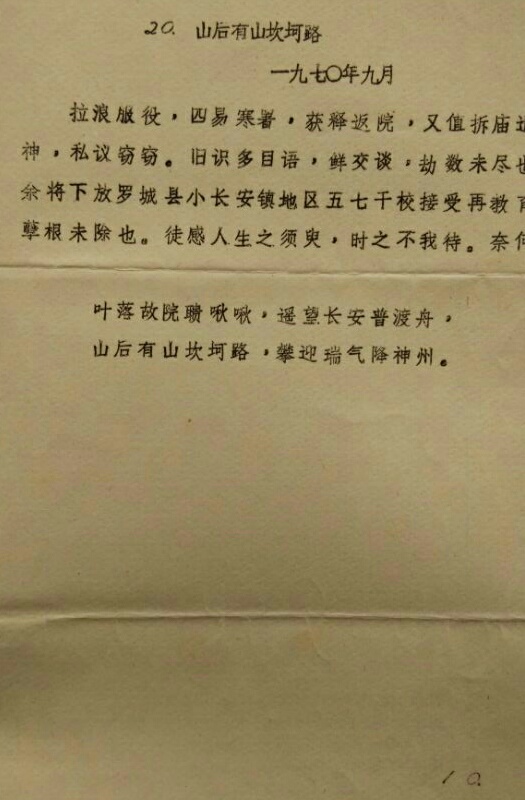 20. 山后有山坎坷路
一九七〇年九月
拉浪服役，四易寒暑，获释返院，又值拆庙
神，私议窃窃。旧识多目语，鲜交谈，劫数未尽也
余将下放罗城县小长安镇地区五七干校接受再教育
孽根未除也。徒感人生之须臾，时之不我待。奈何
叶落故院聩啾啾，遥望长安普渡舟，
山后有山坎坷路，攀迎瑞气降神州。
10.